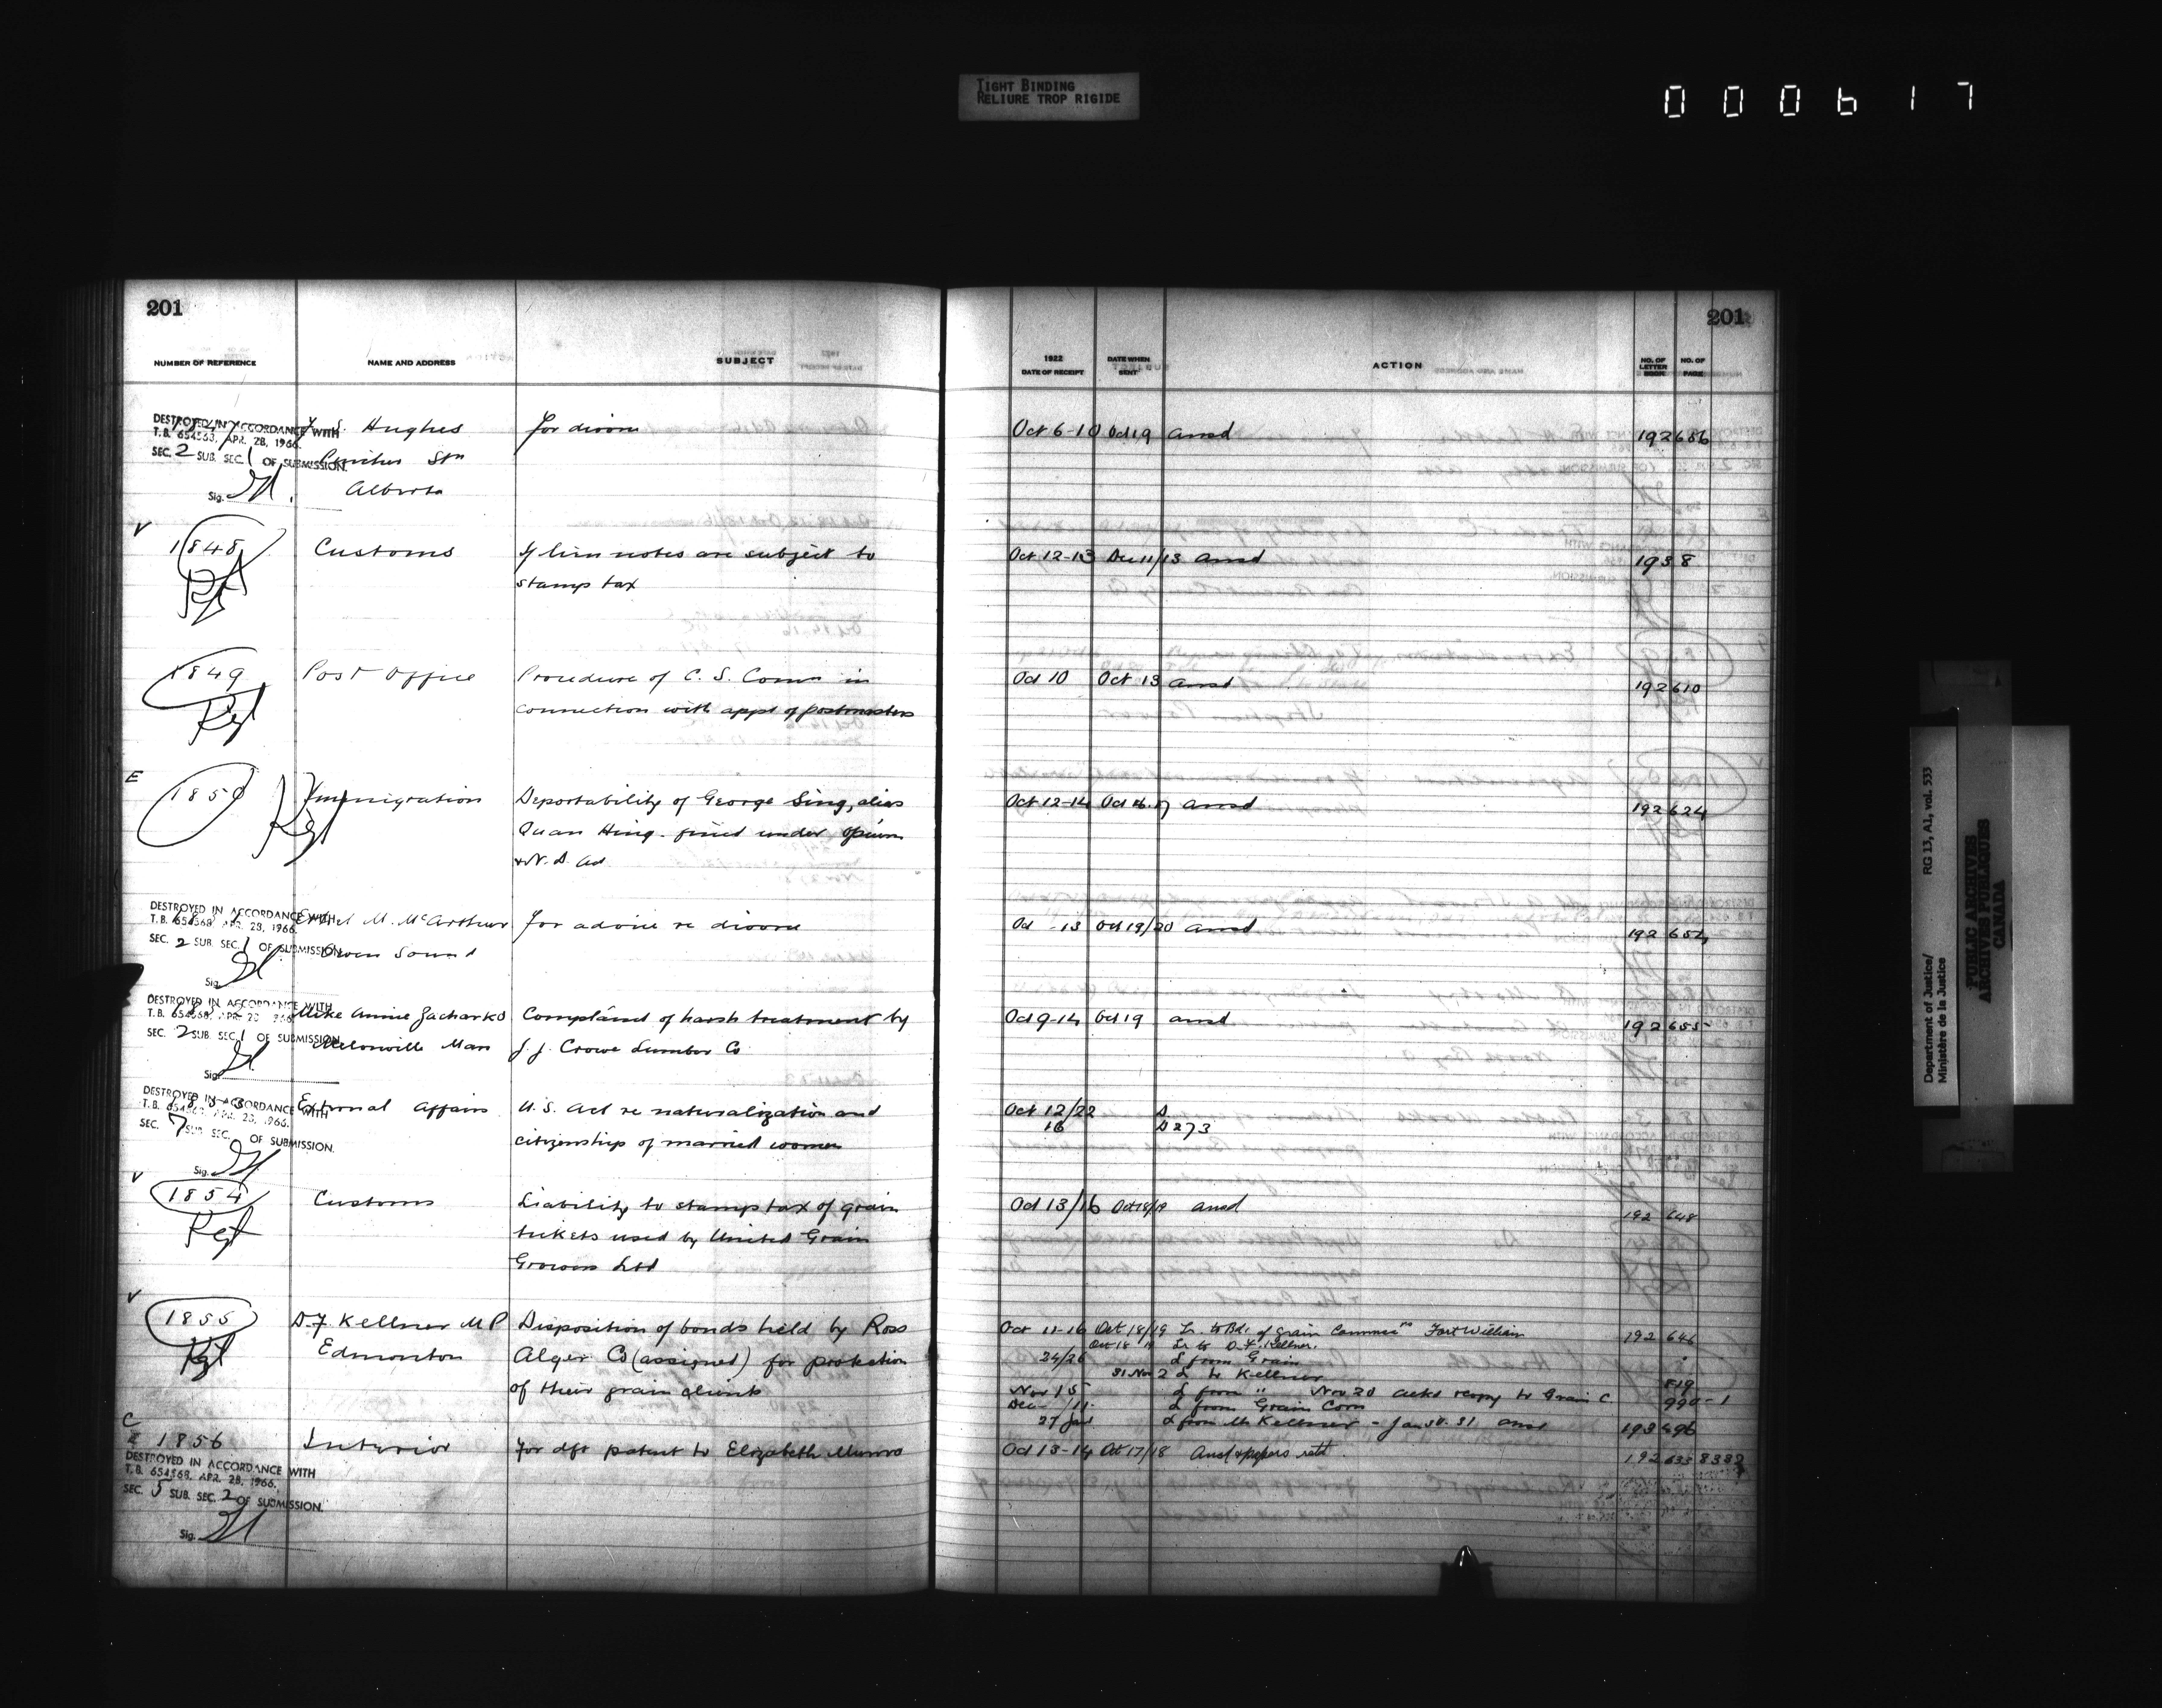 TIGHT BINDING
RELIURE TROP RIGIDE
000617
201
NUMBER OF REFERENCE NAME AND ADDRESS SUBJECT
1922 DATE OF RECEIPT DATE WHEN SENT ACTION NO. OF LETTER BOOK NO. OF PAGE
201
DESTROYED IN ACCORDANCE WITH
T.B. 654568, APR. 28, 1966.
SEC. 2 SUB. SEC. 1 OF SUBMISSION.
Sig.
Hughes For divorce Oct 6-10 Oct 19 ansd 192 686
Stn
Alberta
V
1848 Customs If lien notes are subject to Oct 12-13 Dec 11/13 ansd 193 8
stamp tax
Rgt
1849 Post Office Procedure of C. S. Comn in Oct 10 Oct 13 ansd 192 610
Rgt connection with appt of postmasters
E
1850 Immigration Deportability of George Sing, alias Oct 12-14 Oct 16.17 ansd 192 624
Rgt Quan Hing - fined under Opium
& N. D. Act
DESTROYED IN ACCORDANCE WITH
T.B. 654568 APR. 28, 1966.
SEC. 2 SUB. SEC. 1 OF SUBMISSION.
Sig.
Ethel M. McArthur For advice re divorce Oct 13 Oct 19/20 ansd 192 654
Owen Sound
DESTROYED IN ACCORDANCE WITH
T.B. 654568, APR. 28 1966
SEC. 2 SUB. SEC. 1 OF SUBMISSION.
Sig.
Mike Annie Zacharko Complaint of harsh treatment by Oct 9-14 Oct 19 ansd 192 655
Man J. J. Crowe Lumber Co
DESTROYED IN ACCORDANCE WITH
T.B. 654568, APR. 28, 1966.
SEC. 7 SUB. SEC. OF SUBMISSION.
Sig.
External Affairs U.S. Act re naturalization and Oct 12/22
citizenship of married women 16 273
V
1854 Customs Liability to stamp tax of grain Oct 13/16 Oct 18/19 ansd 192 648
Rgt tickets used by United Grain
Growers Ltd
V
1855 D. F. Kellner M P Disposition of bonds held by Ross Oct 11-16 Oct 18/19 Lr. to Bd. of Grain Commrs Fort William 192 646
Rgt Edmonton Alger Co (assigned) for protection Oct 18 19 Lr to D. F. Kellner.
of their grain clients 24/26 L from Grain
31 Nov 2 L to Kellner 819
Nov 15 L from " Nov 20 ackd & copy to Grain C. 990-1
Dec /11 L from Grain Com
27 Jan L from Mr Kellner - Jan 30.31 ansd 193 496
C
E 1856 Interior For dft patent to Elizabeth Munro Oct 13-14 Oct 17/18 Ansd & papers retd. 192 635 8382
DESTROYED IN ACCORDANCE WITH
T.B. 654568, APR. 28, 1966.
SEC. 5 SUB. SEC. 2 OF SUBMISSION.
Sig.
Department of Justice/ RG 13, A1, vol. 533
Ministère de la Justice
PUBLIC ARCHIVES
ARCHIVES PUBLIQUES
CANADA